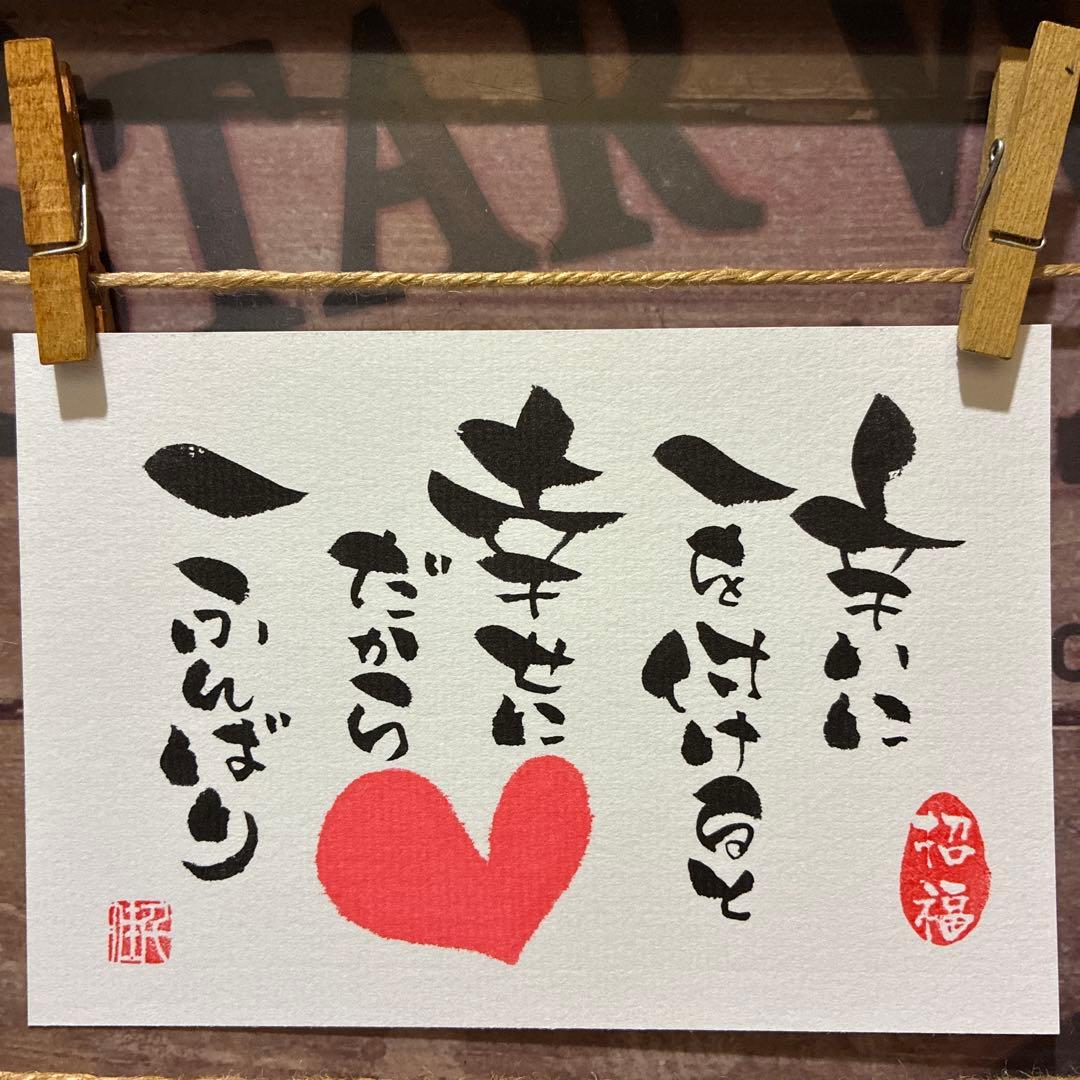 辛いに
一を付けると
幸せに
だから
一ふんばり
招福
TAR W